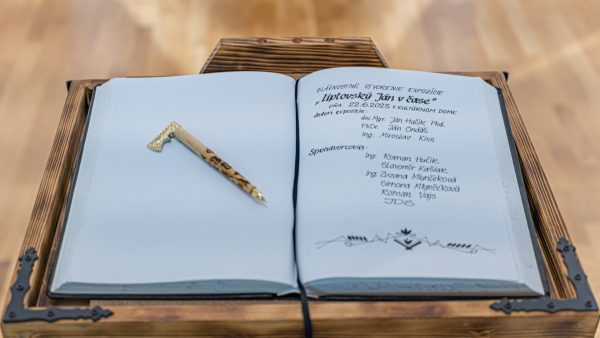 SLÁVNOSTNÉ OTVORENIE EXPOZÍCIE
„Liptovský Ján v čase"
DŇA 22.6.2023 V KULTÚRNOM DOME
Autori expozície:
doc. Mgr. Ján Hučík Phd.
PhDr. Ján Ondáš
Ing. Miroslav
Spolutvorcovia:
Ing. Roman Hučík
Slavomír Kašiak
Ing. Zuzana Mlynčeková
Simona Mlynčeková
Roman Vajs